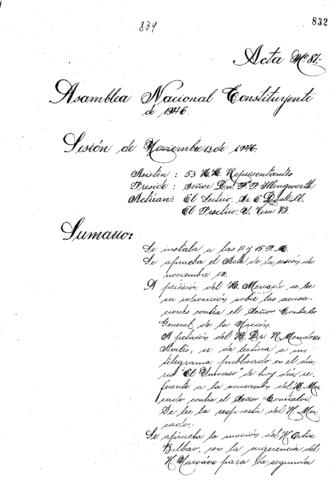 839
832
Acta Nº 87.-
Asamblea Nacional Constituyente
de 1946.
Sesión de Noviembre 13 de 1946.
Asisten : 53 H.H. Representantes
Preside : Señor Don Illingworth
Actúan: El Sctrio. Dr.
El Psctrio. V. Vera
Sumario:
Se instala a las 11 y 15
Se aprueba el Acta de la sesión de
noviembre 12.
A petición del H. Mercado se lee
su exposición sobre las acusa-
ciones contra el Señor Contralor
General de la Nación.
A petición del H. Dr. N. Mendoza
Avilés, se da lectura a un
telegrama publicado en el dia-
rio "El Universo" de hoy día, re-
ferente a la acusación del H. Mer-
cado contra el Señor Contralor.
Se lee la respuesta del H. Mer-
cado.
Se aprueba la moción del H.
Bilbao, con la sugerencia del
H. Narváez para la segunda